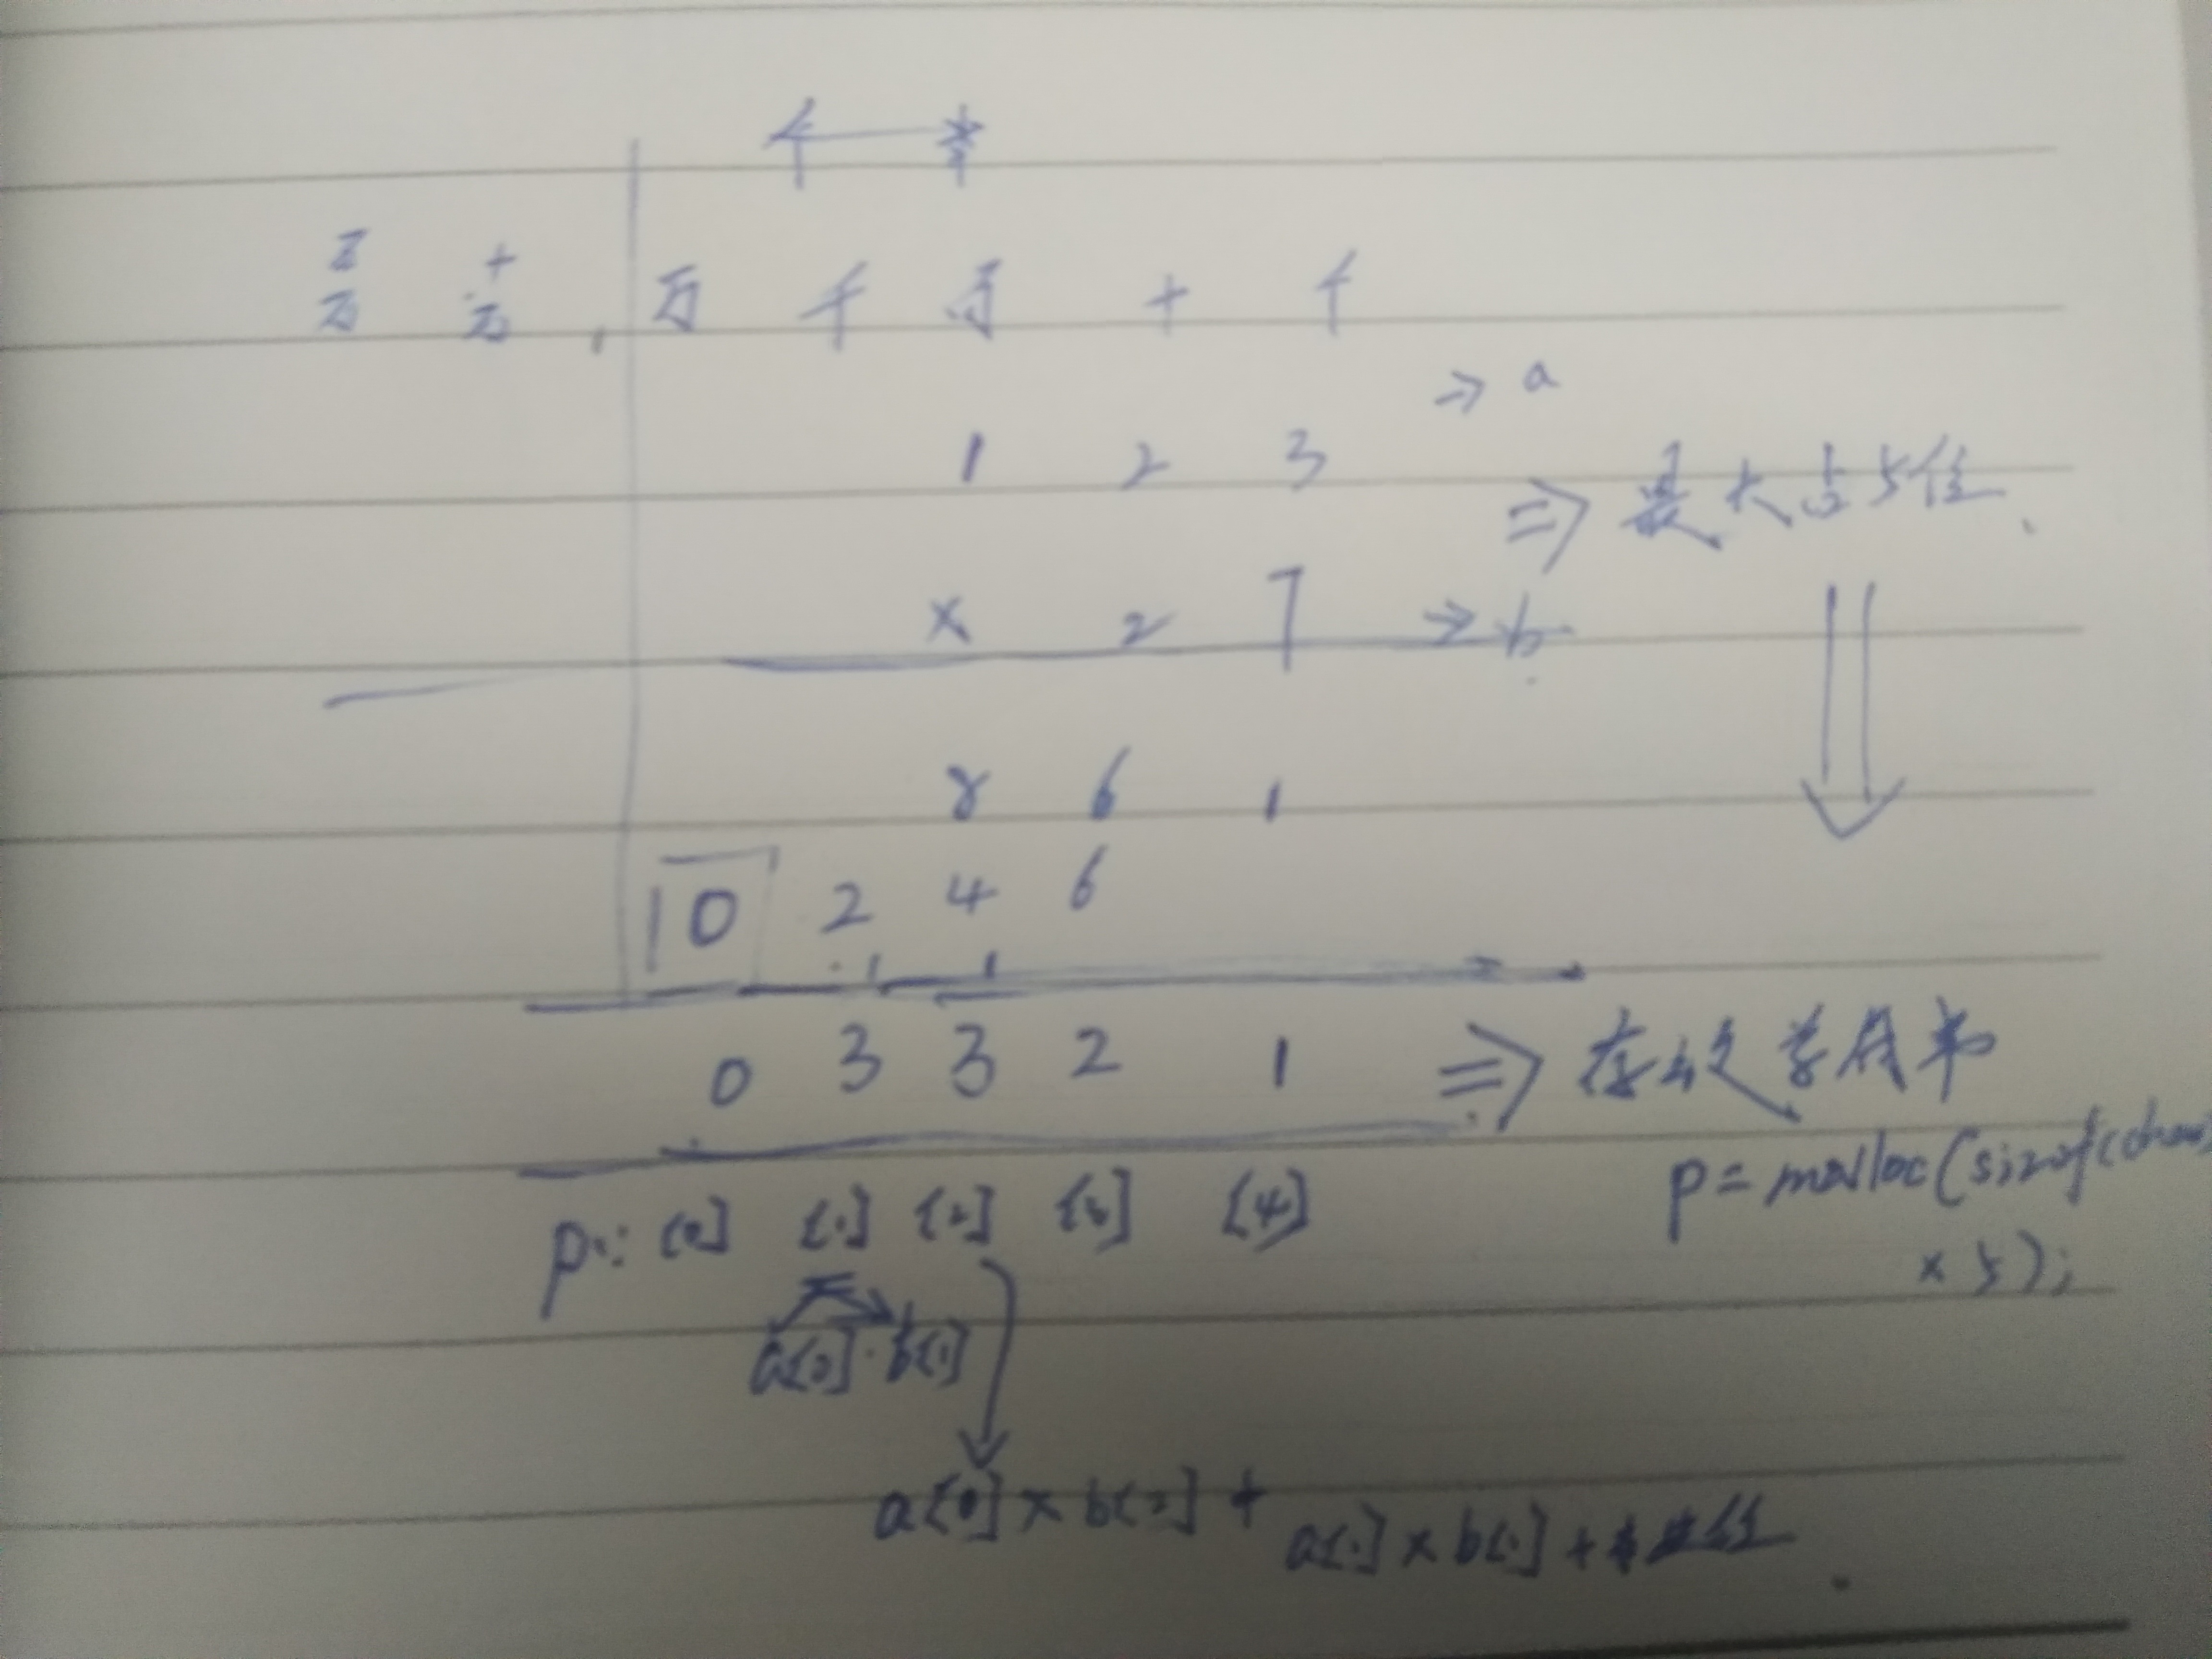 个
百 十
万 万 , 万 千 百 十 个
⇒ a
1 2 3
⇒ 最大占5位
× 2 7 ⇒ b
8 6 1
0 2 4 6
1 1
0 3 3 2 1 ⇒
p = malloc(sizeof(char)
p: [0] [1] [2] [3] [4]
× 5);
a[0] · b[1]
a[0] × b[2] +
a[1] × b[1] + 进位